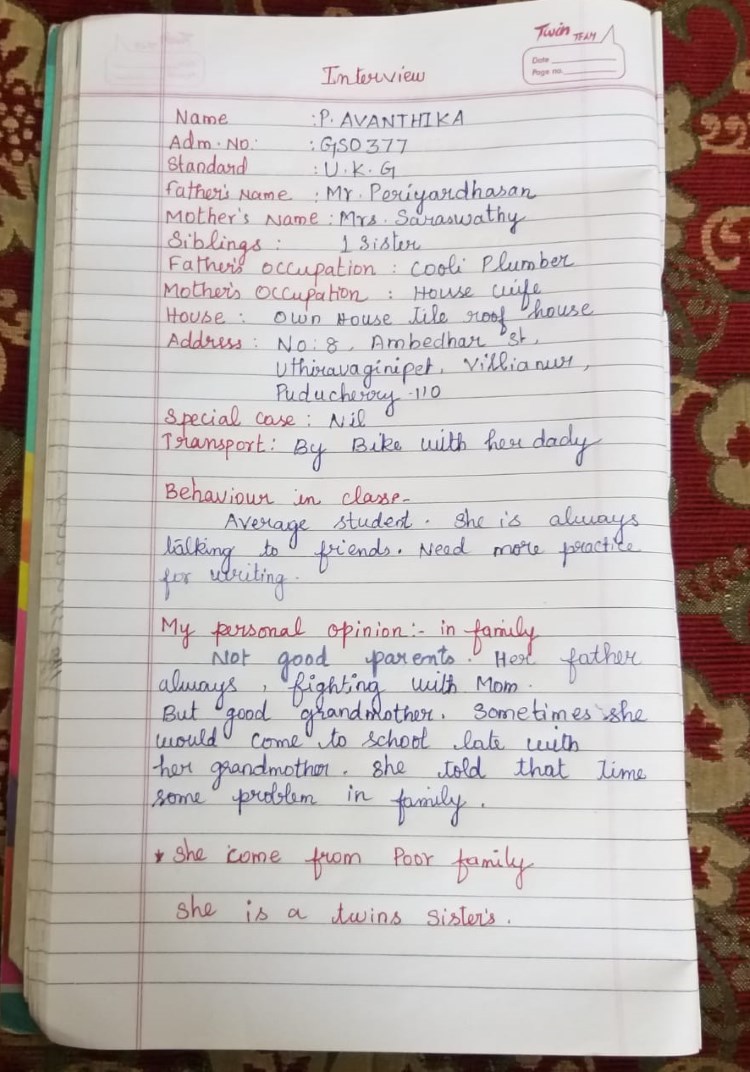 Twin TEAM
Date
Page no.
Interview
Name : P. AVANTHIKA
Adm. No: : GSO377
Standard : U.K.G
Father's Name : Mr. Periyardhasan
Mother's Name : Mrs. Saraswathy
Siblings : 1 sister
Father's occupation : Cooli Plumber
Mother's Occupation : House wife
House : Own House tile roof house
Address : No: 8, Ambedhar st,
Uthiravaginipet, Villianur,
Puducherry -110
Special Case : Nil
Transport: By Bike with her dady
Behaviour in classe-
Average student. She is always
talking to friends. Need more practice
for writing.
My personal opinion:- in family
Not good parents. Her father
always, fighting with Mom.
But good grandmother. Sometimes she
would come to school late with
her grandmother. She told that time
some problem in family.
* She come from Poor family
She is a twins sister's.